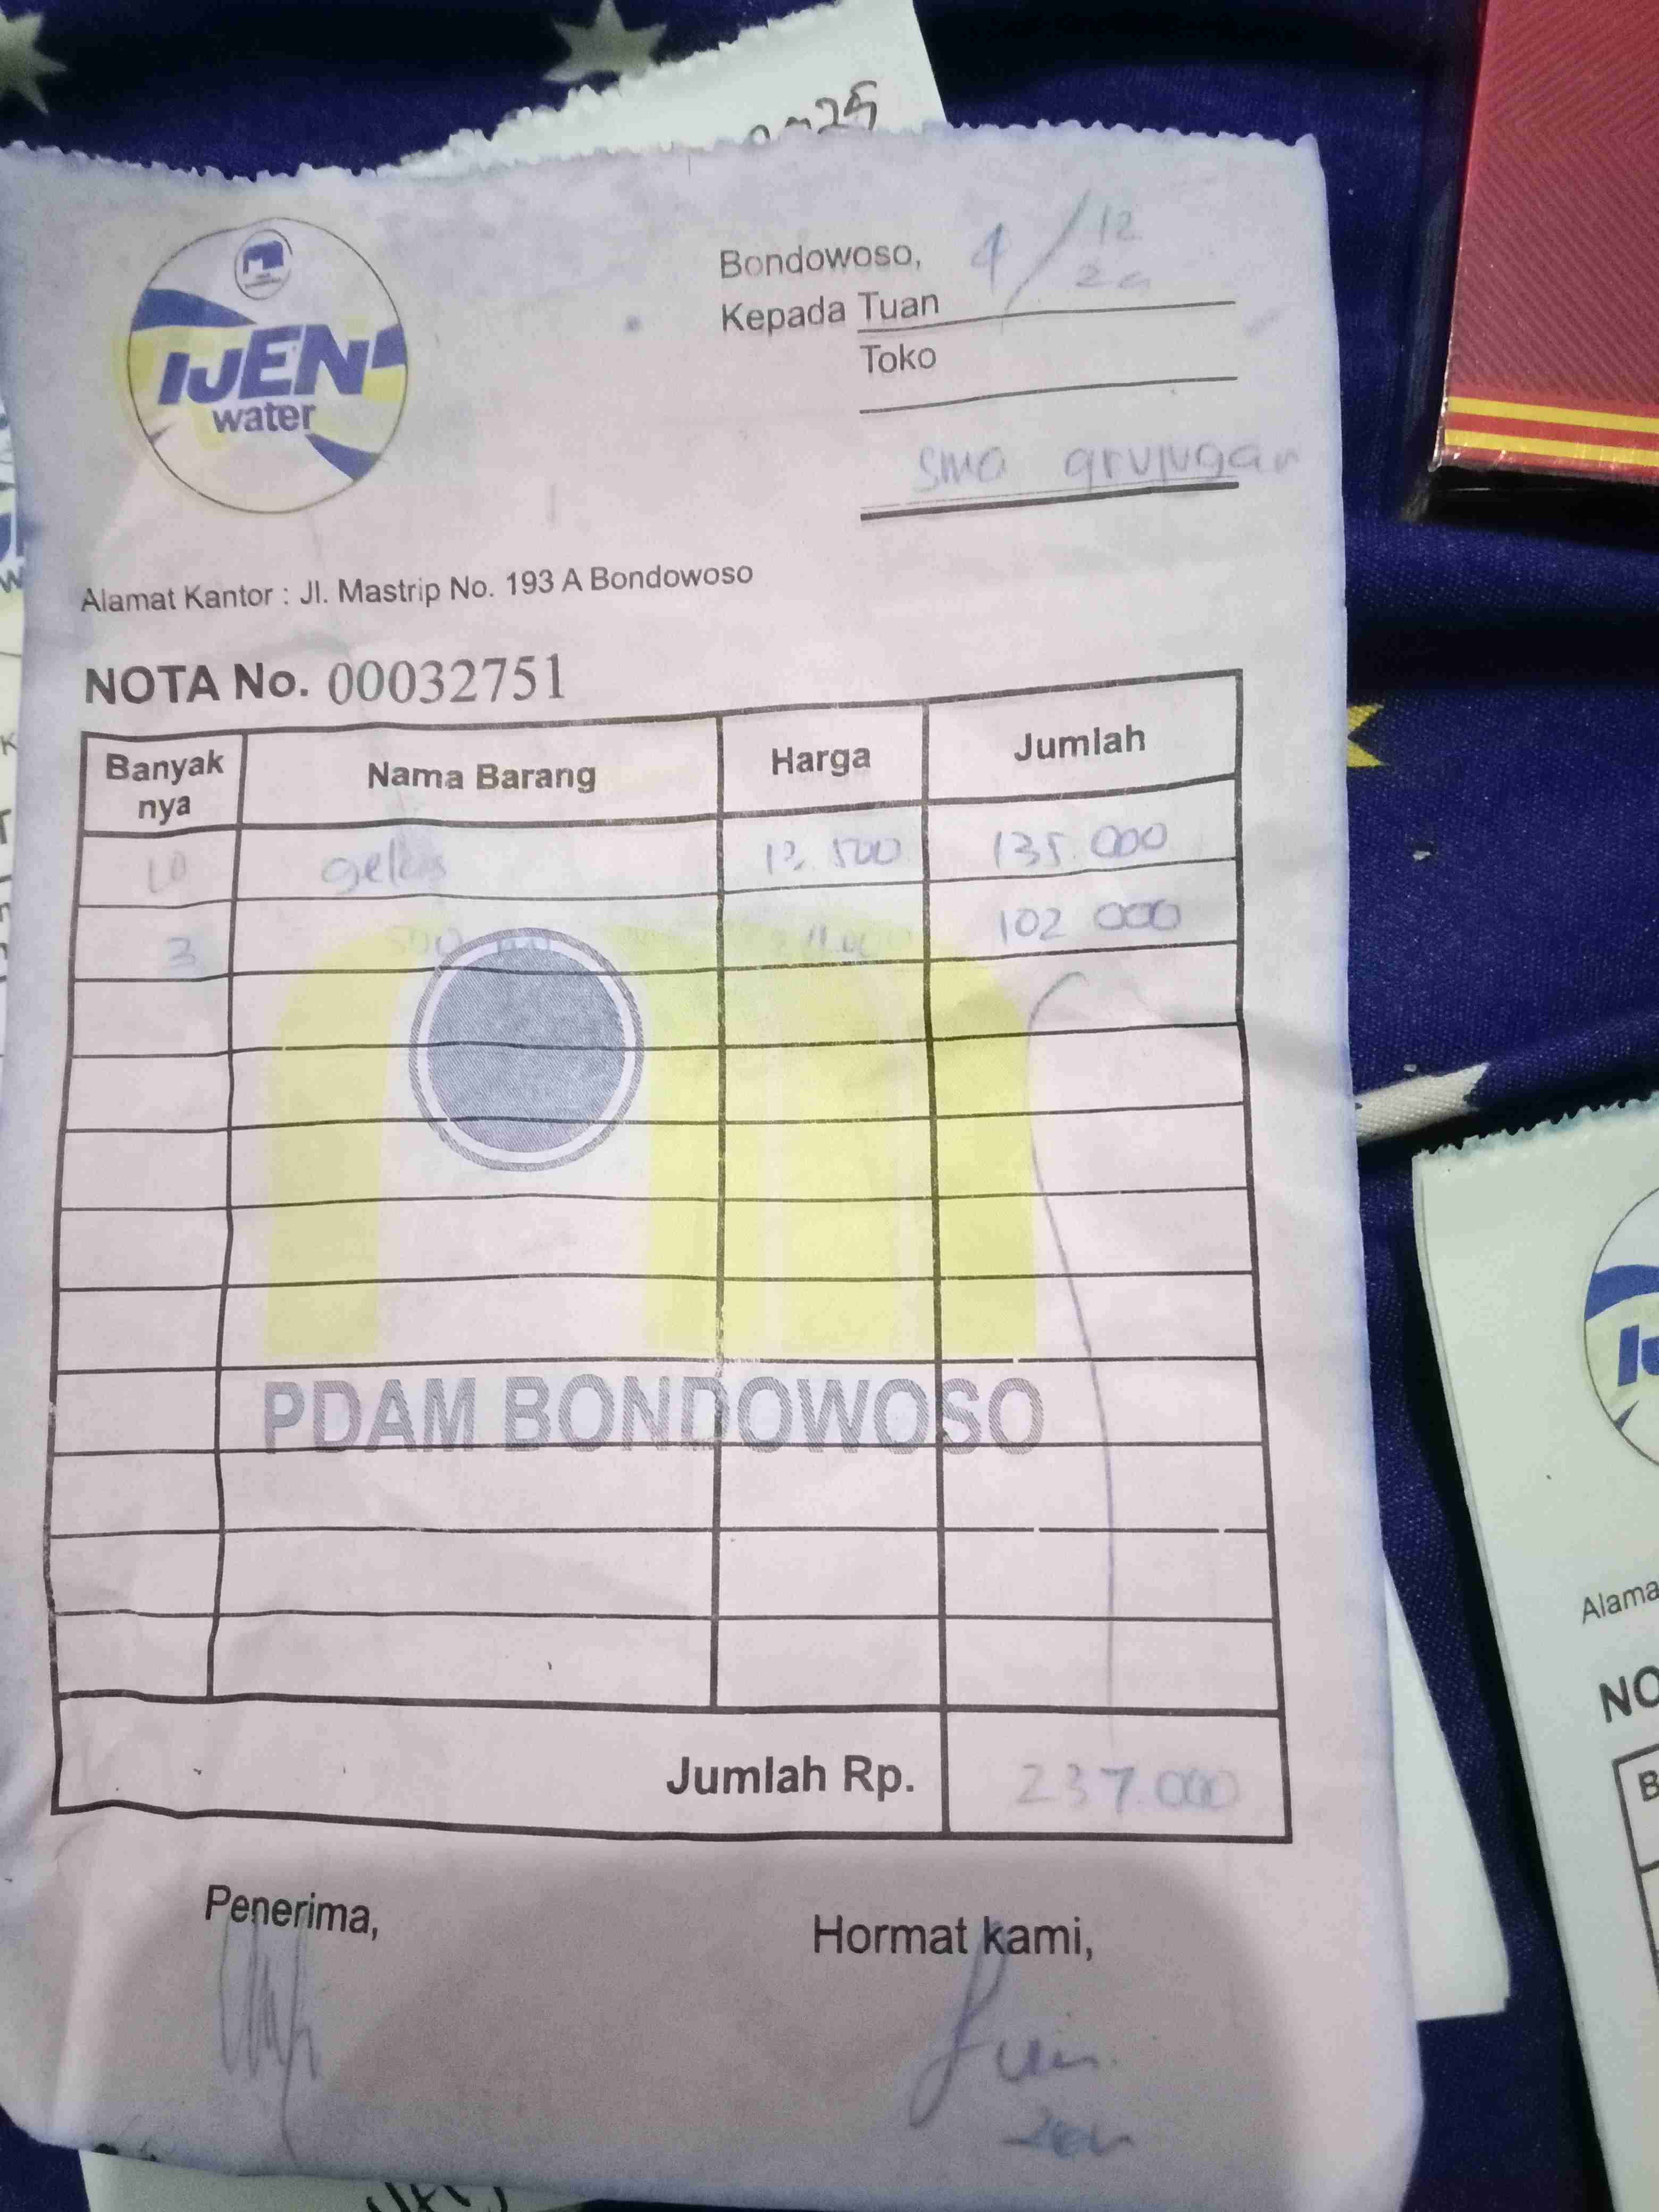 IJEN
water
Bondowoso, 4/12
Kepada Tuan
Toko
sma grujugan
Alamat Kantor : Jl. Mastrip No. 193 A Bondowoso
NOTA No. 00032751
Banyak nya Nama Barang Harga Jumlah
10 gelas 13.500 135.000
3 500 ml 102 000
PDAM BONDOWOSO
Jumlah Rp. 237.000
Penerima, Hormat kami,
IJ
Alama
NO
B